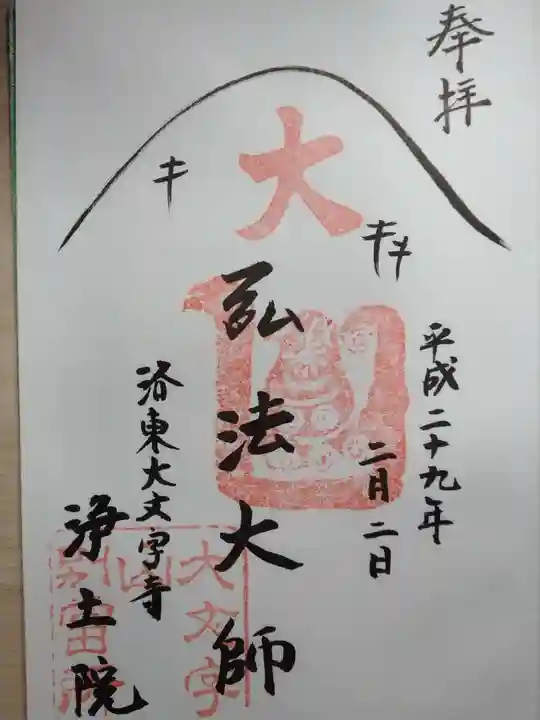 奉拝
平成二十九年
二月二日
大
弘法大師
洛東大文字寺
浄土院
大文字
山